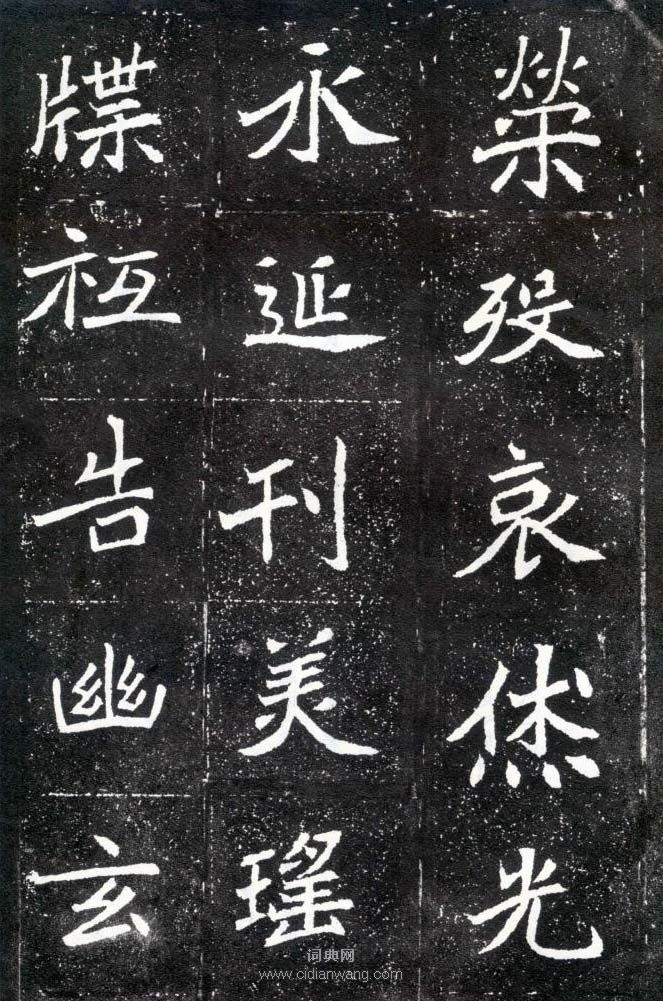 榮殁哀烋光
永延刊美瑤
牒祗告幽玄
词典网
www.cidianwang.com